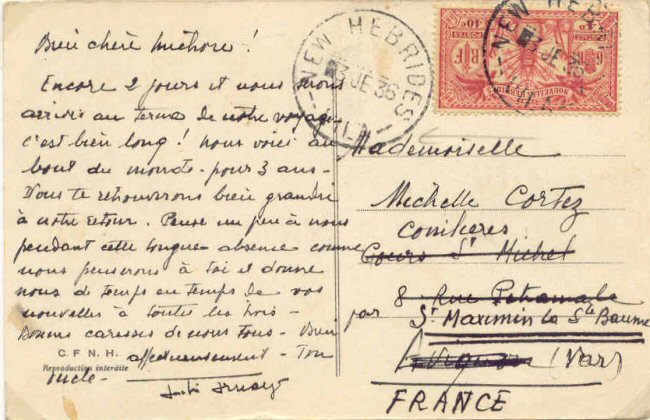 Bien chère Michore !
Encore 2 jours et nous
arrivés au terme de notre voyage
c'est bien long ! nous voici au
bout du monde - pour 3 ans -
Nous te retrouverons bien grandie
à notre retour. Pense un peu à nous
pendant cette longue absence comme
nous penserons à toi et donne
nous de temps en temps de vos
nouvelles à toutes les trois -
Bonnes caresses de nous tous - Bien
affectueusement - Ton
oncle -
C.F.N.H.
Reproduction interdite
NEW HEBRIDES
3 JE 36
VILA
NEW HEBRIDES
3 JE 36
VILA
NOUVELLES HEBRIDES
RF
Mademoiselle
Michelle Cortez
Cours St Michel
8 Rue
par St Maximin la Ste Baume
Avignon (Var)
FRANCE